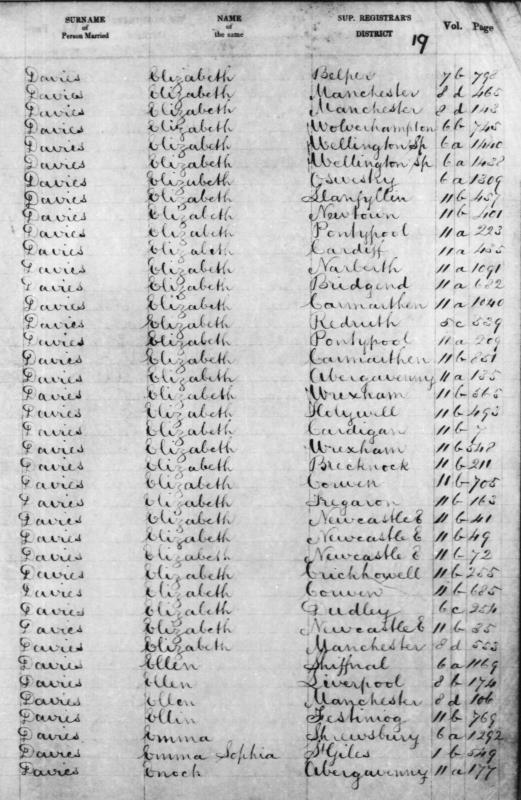 SURNAME of Person Married NAME of the same SUP. REGISTRAR'S DISTRICT Vol. Page
19
Davies Elizabeth Belper 7b 798
Davies Elizabeth Manchester 8d 465
Davies Elizabeth Manchester 8d 143
Davies Elizabeth Wolverhampton 6b 745
Davies Elizabeth Wellington Sp 6a 1440
Davies Elizabeth Wellington Sp 6a 1438
Davies Elizabeth Oswestry 6a 1309
Davies Elizabeth Llanfyllin 11b 457
Davies Elizabeth Newtown 11b 401
Davies Elizabeth Pontypool 11a 223
Davies Elizabeth Cardiff 11a 485
Davies Elizabeth Narberth 11a 1091
Davies Elizabeth Bridgend 11a 682
Davies Elizabeth Carmarthen 11a 1040
Davies Elizabeth Redruth 5c 539
Davies Elizabeth Pontypool 11a 209
Davies Elizabeth Carmarthen 11b 851
Davies Elizabeth Abergavenny 11a 135
Davies Elizabeth Wrexham 11b 565
Davies Elizabeth Holywell 11b 493
Davies Elizabeth Cardigan 11b 7
Davies Elizabeth Wrexham 11b 548
Davies Elizabeth Brecknock 11b 211
Davies Elizabeth Corwen 11b 705
Davies Elizabeth Tregaron 11b 163
Davies Elizabeth Newcastle E 11b 41
Davies Elizabeth Newcastle E 11b 49
Davies Elizabeth Newcastle E 11b 72
Davies Elizabeth Crickhowell 11b 255
Davies Elizabeth Corwen 11b 685
Davies Elizabeth Dudley 6c 254
Davies Elizabeth Newcastle E 11b 35
Davies Elizabeth Manchester 8d 553
Davies Ellen Shiffnal 6a 1169
Davies Ellen Liverpool 8b 174
Davies Ellen Manchester 8d 106
Davies Ellin Festiniog 11b 769
Davies Emma Shrewsbury 6a 1292
Davies Emma Sophia St Giles 1b 549
Davies Enoch Abergavenny 11a 177